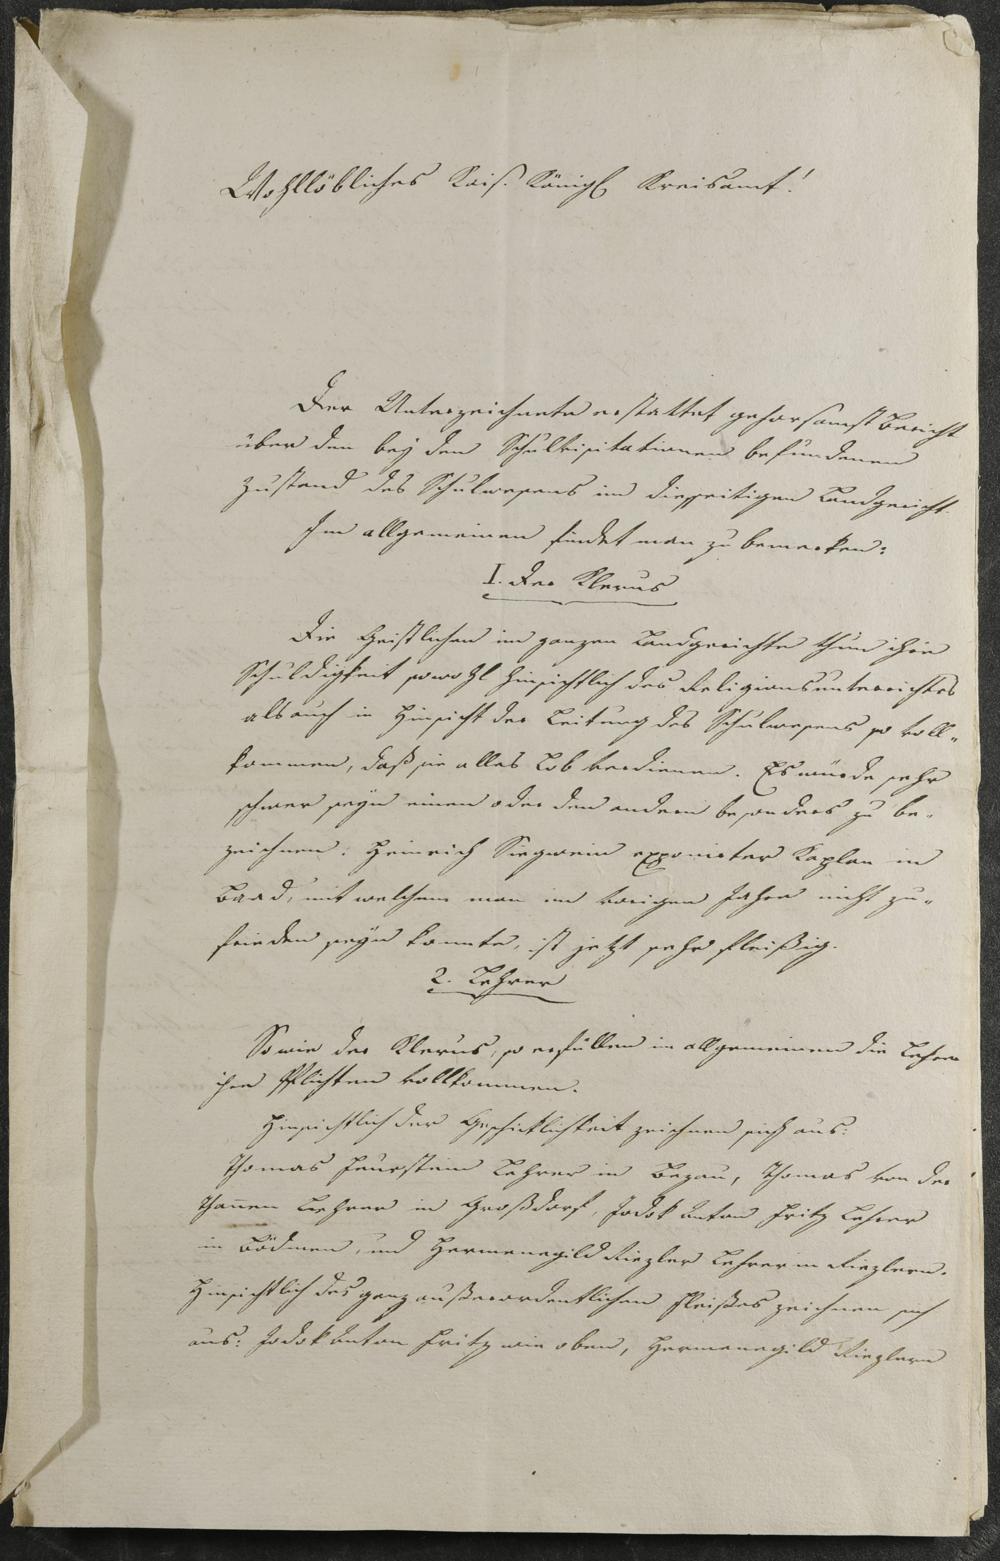 Wohllöbliches Kais. Königl. Kreisamt!
Der Unterzeichnete erstattet gehorsamst Bericht
über den bey den Schulvisitationen befundenen
Zustand des Schulwesens im diesseitigen Landgericht.
Im allgemeinen findet man zu bemerken:
I. Der Klerus
Die Geistlichen im ganzen Landgerichte thun ihre
Schuldigkeit sowohl hinsichtlich des Religionsunterrichtes
als auch in Hinsicht der Leitung des Schulwesens so voll-
kommen, daß sie alles Lob verdienen. Es würde sehr
schwer seyn einen oder den andern besonders zu be-
zeichnen. Heinrich Siegwein exponirter Kaplan in
Baad, mit welchem man im vorigen Jahre nicht zu-
frieden seyn konnte, ist jetzt sehr fleißig.
2. Lehrer
Sowie der Klerus, so erfüllen im allgemeinen die Lehrer
ihre Pflichten vollkommen.
Hinsichtlich der Geschicklichkeit zeichnen sich aus:
Thomas Feurstein Lehrer in Bezau, Thomas von der
Thannen Lehrer in Großdorf, Jodok Anton Fritz Lehrer
in Bödmen, und Hermenegild Riezler Lehrer in Riezlern.
Hinsichtlich des ganz außerordentlichen Fleißes zeichnen sich
aus: Jodok Anton Fritz wie oben, Hermenegild Riezlern